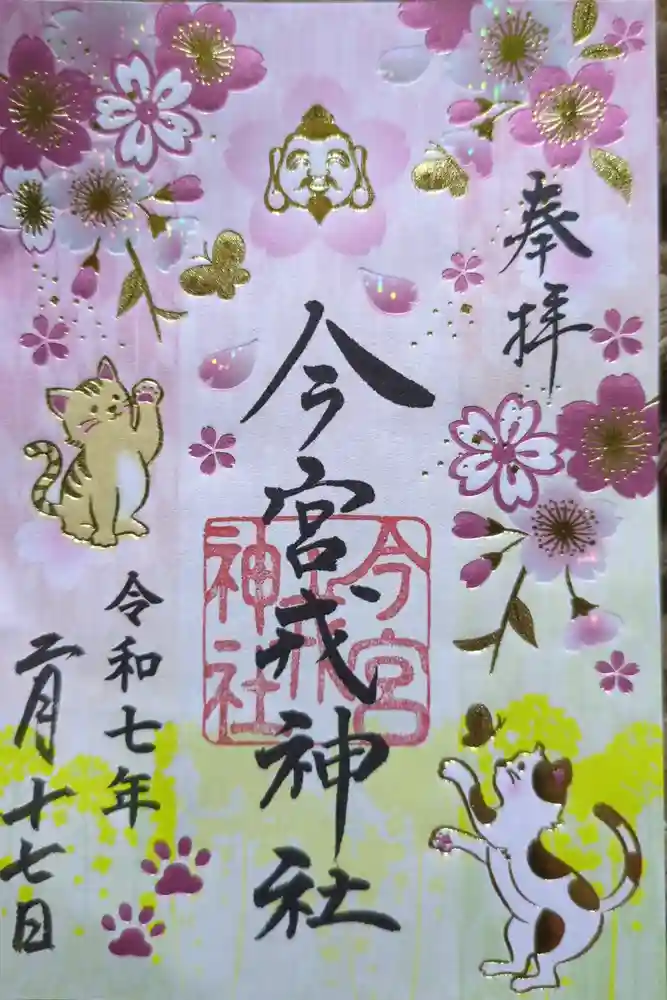 奉拝
今宮戎神社
今宮戎神社
令和七年
二月十七日